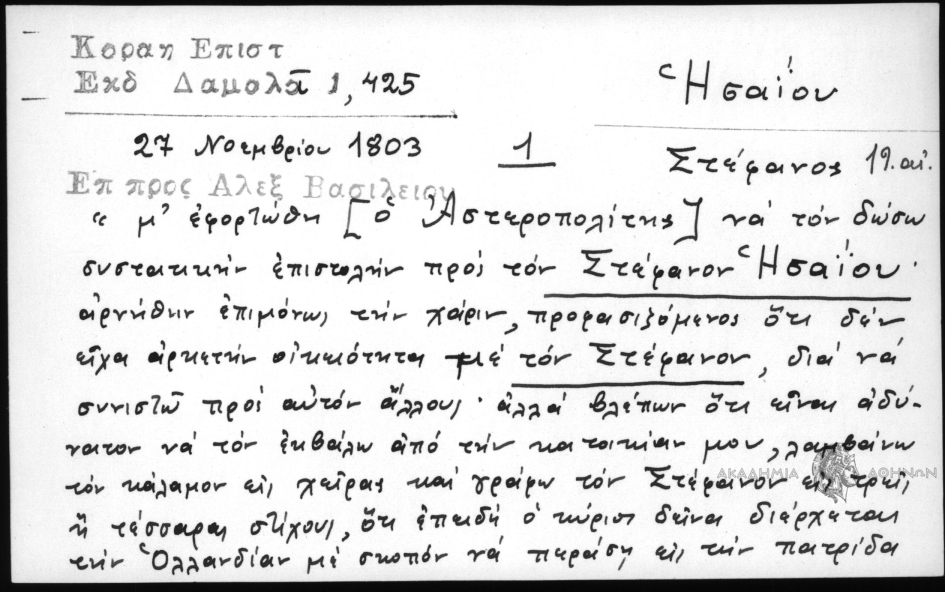 Κοραη Επιστ
Εκδ Δαμαλᾶ 1, 425
Ἡσαΐου
27 Νοεμβρίου 1803
1
Στέφανος 19. αἰ.
Επ προς Αλεξ Βασιλειου
" μ' ἐφορτώθη [ὁ Ἀστεροπολίτης] νά τόν δώσω
συστατικήν ἐπιστολήν πρός τόν Στέφανον Ἡσαΐου·
ἀρνήθην ἐπιμόνως τήν χάριν, προφασιζόμενος ὅτι δέν
εἶχα ἀρκετήν οἰκειότητα μέ τόν Στέφανον, διά νά
συνιστῶ πρός αὐτόν ἄλλους· ἀλλά βλέπων ὅτι εἶναι ἀδύ-
νατον νά τόν ἐκβάλω ἀπό τήν κατοικίαν μου, λαμβάνω
τόν κάλαμον εἰς χεῖρας καί γράφω τόν Στέφανον εἰς τρεῖς
ἤ τέσσαρας στίχους, ὅτι ἐπειδή ὁ κύριος δεῖνα διέρχεται
τήν Ὁλλανδίαν μέ σκοπόν νά περάσῃ εἰς τήν πατρίδα
ΑΚΑΔΗΜΙΑ ΑΘΗΝΩΝ